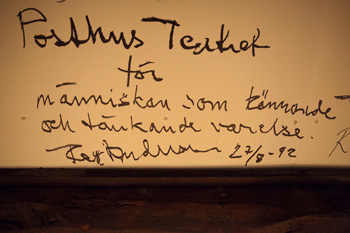 Posthus Teatret
för
människan som kännande
och tänkande varelse.
27/8-92
R